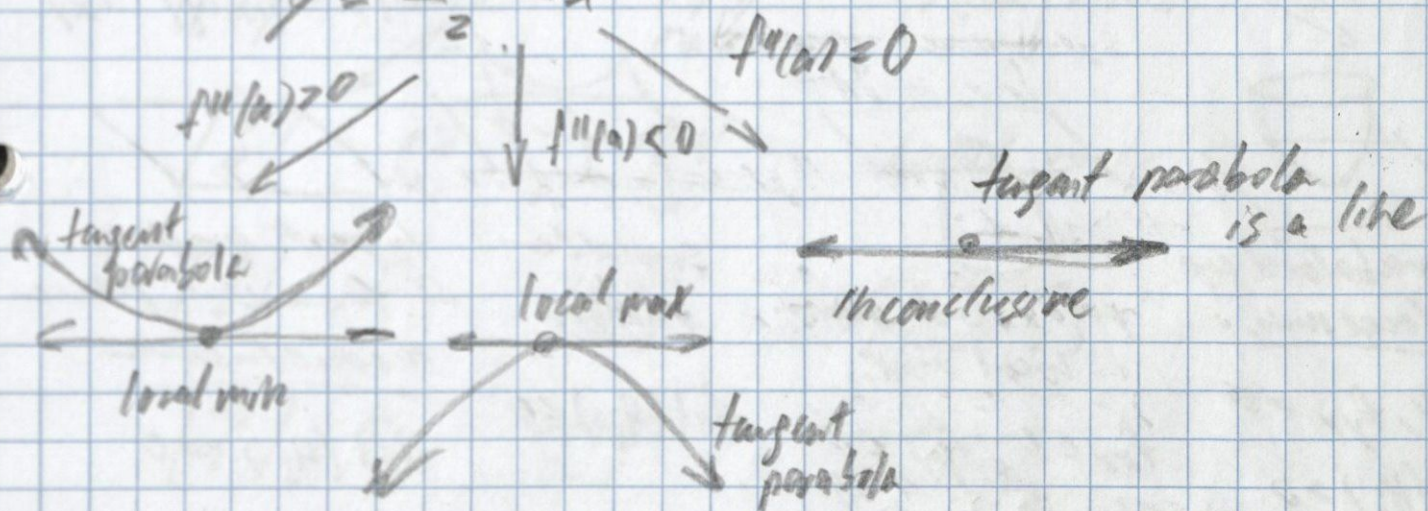 2
f''(a) = 0
f''(a) > 0
f''(a) < 0
tangent parabola
is a line
tangent
parabola
local max
inconclusive
local min
tangent
parabola